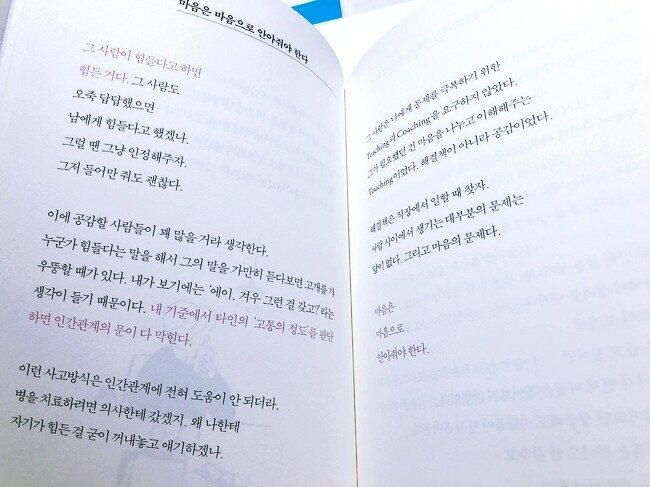 마음은 마음으로 안아줘야 한다
그 사람이 힘들다고 하면
힘든 거다. 그 사람도
오죽 답답했으면
남에게 힘들다고 했겠나.
그럴 땐 그냥 인정해주자.
그저 들어만 줘도 괜찮다.
이에 공감할 사람들이 꽤 많을 거라 생각한다.
누군가 힘들다는 말을 해서 그의 말을 가만히 듣다보면 고개를 갸
우뚱할 때가 있다. 내가 보기에는 '에이, 겨우 그런 걸 갖고?'라는
생각이 들기 때문이다. 내 기준에서 타인의 '고통의 정도'를 판단
하면 인간관계의 문이 다 막힌다.
이런 사고방식은 인간관계에 전혀 도움이 안 되더라.
병을 치료하려면 의사한테 갔겠지. 왜 나한테
자기가 힘든 걸 굳이 꺼내놓고 얘기하겠나.
그 사람은 나에게 문제를 극복하기 위한
Teaching과 Coaching을 요구하지 않았다.
그가 필요했던 건 마음을 나누고 이해해주는
Touching이었다. 해결책이 아니라 공감이었다.
해결책은 직장에서 일할 때 찾자.
사람 사이에서 생기는 대부분의 문제는
답이 없다. 그리고 마음의 문제다.
마음은
마음으로
안아줘야 한다.